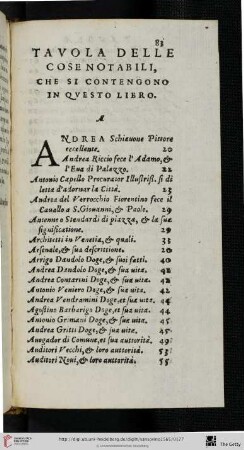 83
TAVOLA DELLE
COSE NOTABILI,
CHE SI CONTENGONO
IN QVESTO LIBRO.
A
ANDREA Schiauone Pittore
eccellente. 20
Andrea Riccio fece l'Adamo, &
l'Eua di Palazzo. 22
Antonio Capello Procurator Illustriss. si di
letta d'adornar la Città. 23
Andrea del Verrocchio Fiorentino fece il
Cauallo a S. Giouanni, & Paolo. 29
Antenne o Stendardi di piazza, & la sua
significatione. 29
Architetti in Venetia, & quali. 31
Arsenale, & sua descrittione. 20
Arrigo Dandolo Doge, & suoi fatti. 40
Andrea Dandolo Doge, & sua uita. 42
Andrea Contarini Doge, & sua uita. 42
Antonio Veniero Doge, & sua uita. 42
Andrea Vendramini Doge, et sua uita. 44
Agostino Barbarigo Doge, et sua uita. 44
Antonio Grimani Doge, & sua uita. 45
Andrea Gritti Doge, & sua uita. 45
Auogador di Comune, et sua auttorità. 49
Auditori Vecchi, & loro auttorità. 53
Auditori Noui, & loro auttorità. 55
The Getty